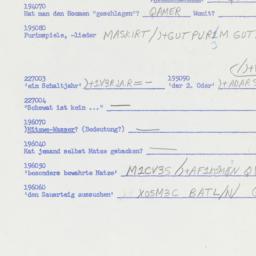 194070
Hat man den Hoomen "geschlagen"? QAMER Womit?
195080
Purimspiele, -lieder MASKIRT/)+GUT PURIM GUT
227003 195090
'ein Schaltjahr' )+1V3RJAR=- 'der 2. Oder' )+ADAR
227004
"Schewat ist kein ..." —
196070
)Mituwe-Wasser? (Bedeutung?) —
196040
Hat jemand selbst Matze gebacken? —
196030
'besonders bewahrte Matze' M1CV3S/)+AF1KOMIN Q
196060
'den Sauerteig aussuchen' XOSM3C BATL/N/